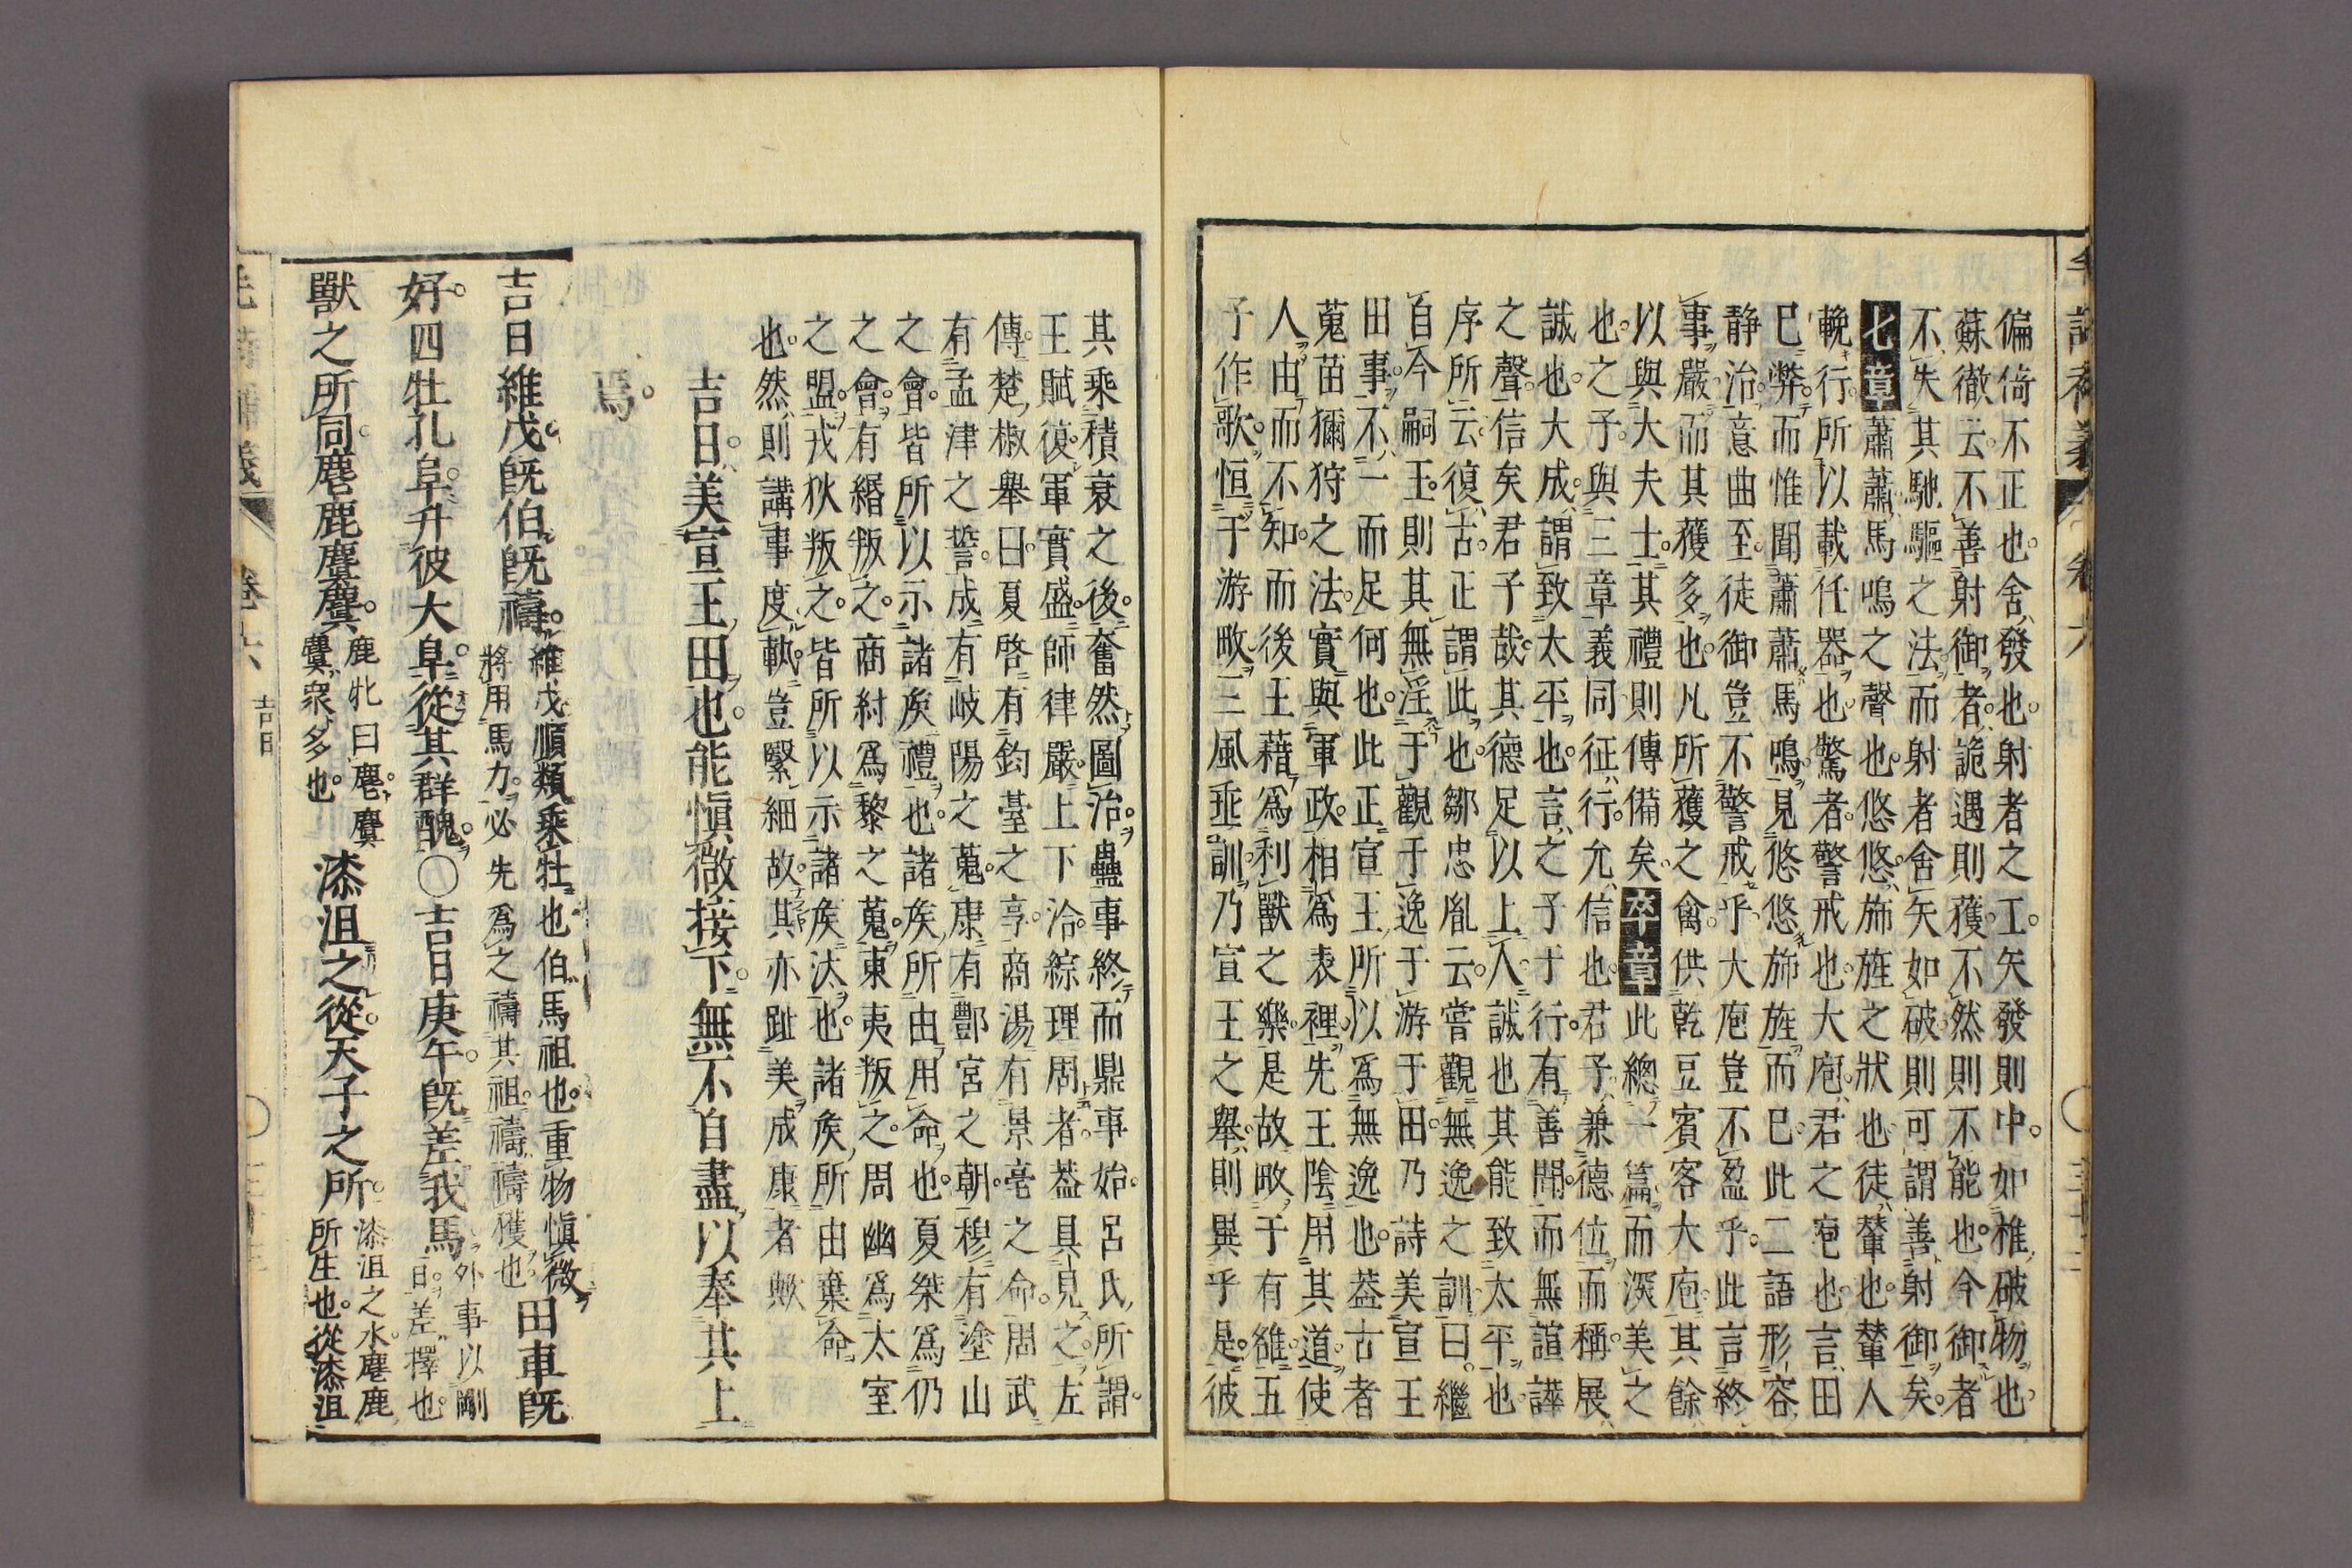 毛詩補義 卷六
偏倚不正也。舍、發也。射者之工。矢發則中。如椎破物也
蘇徹云。不善射御者。詭遇則獲。不然則不能也。今御者
不失其馳驅之法。而射者舍矢如破。則可謂善射御矣。
七章蕭蕭、馬鳴之聲也。悠悠、斾旌之狀也。徒、輦也。輦人
輓行。所以載任器也。驚者。警戒也。大庖、君之庖也。言、田
巳弊。而惟聞蕭蕭馬鳴。見悠悠斾旌而巳。此二語形容
静治。意曲至。徒御豈不警戒乎。大庖豈不盈乎。此言終
事嚴。而其獲多也。凡所獲之禽。供乾豆賓客大庖。其餘
以與大夫士。其禮則傳備矣。卒章此總一篇。而深美之
也。之子。與三章義同。征、行。允、信也。君子、兼德位而稱。展、
誠也。大成。謂致太平也。言、之子于行。有善聞。而無諠譁
之聲。信矣君子哉。其德足以上人。誠也其能致太平也
序所云復古。正謂此也。鄒忠胤云。嘗觀無逸之訓曰。繼
自今嗣王。則其無淫于觀于逸于游于田。乃詩美宣王
田事。不一而足何也。此正宣王所以爲無逸也。葢古者
蒐苗獮狩之法。實與軍政相爲表裡。先王陰用其道。使
人由而不知。而後王藉爲利獸之樂。是故畋于有雒。五
子作歌。恒于游畋。三風垂訓。乃宣王之舉。則異乎是。彼
其乘積衰之後。奮然圖治。蠱事終而鼎事始。呂氏所謂。
王賦復。軍實盛。師律嚴。上下洽。綜理周者。葢具見之。左
傳。楚椒舉曰。夏啓有鈞臺之享。商湯有景亳之命。周武
有孟津之誓。成有岐陽之蒐。康有酆宮之朝。穆有塗山
之會。皆所以示諸矦禮也。諸矦所由用命也。夏桀爲仍
之會。有緡叛之。商紂爲黎之蒐。東夷叛之。周幽爲太室
之盟。戎狄叛之。皆所以示諸矦汰也。諸矦所由棄命
也。然則講事度軌。豈緊細故。其亦趾美成康者歟
吉日。美宣王田也。能愼微接下。無不自盡。以奉其上
焉。
吉日維戊。旣伯旣禱。維戊、順類乘牡也。伯、馬祖也。重物愼微、
將用馬力。必先爲之禱其祖。禱、禱獲也田車旣
好。四牡孔阜。升彼大阜。從其群醜。○吉日庚午。旣差我馬外事以剛
日。差、擇也。
獸之所同。麀鹿麌麌。鹿牝曰麀。麀、麌
麌、衆多也。漆沮之從。天子之所。漆沮之水。麀鹿
所生也。從漆沮
毛詩補義 卷六 吉日